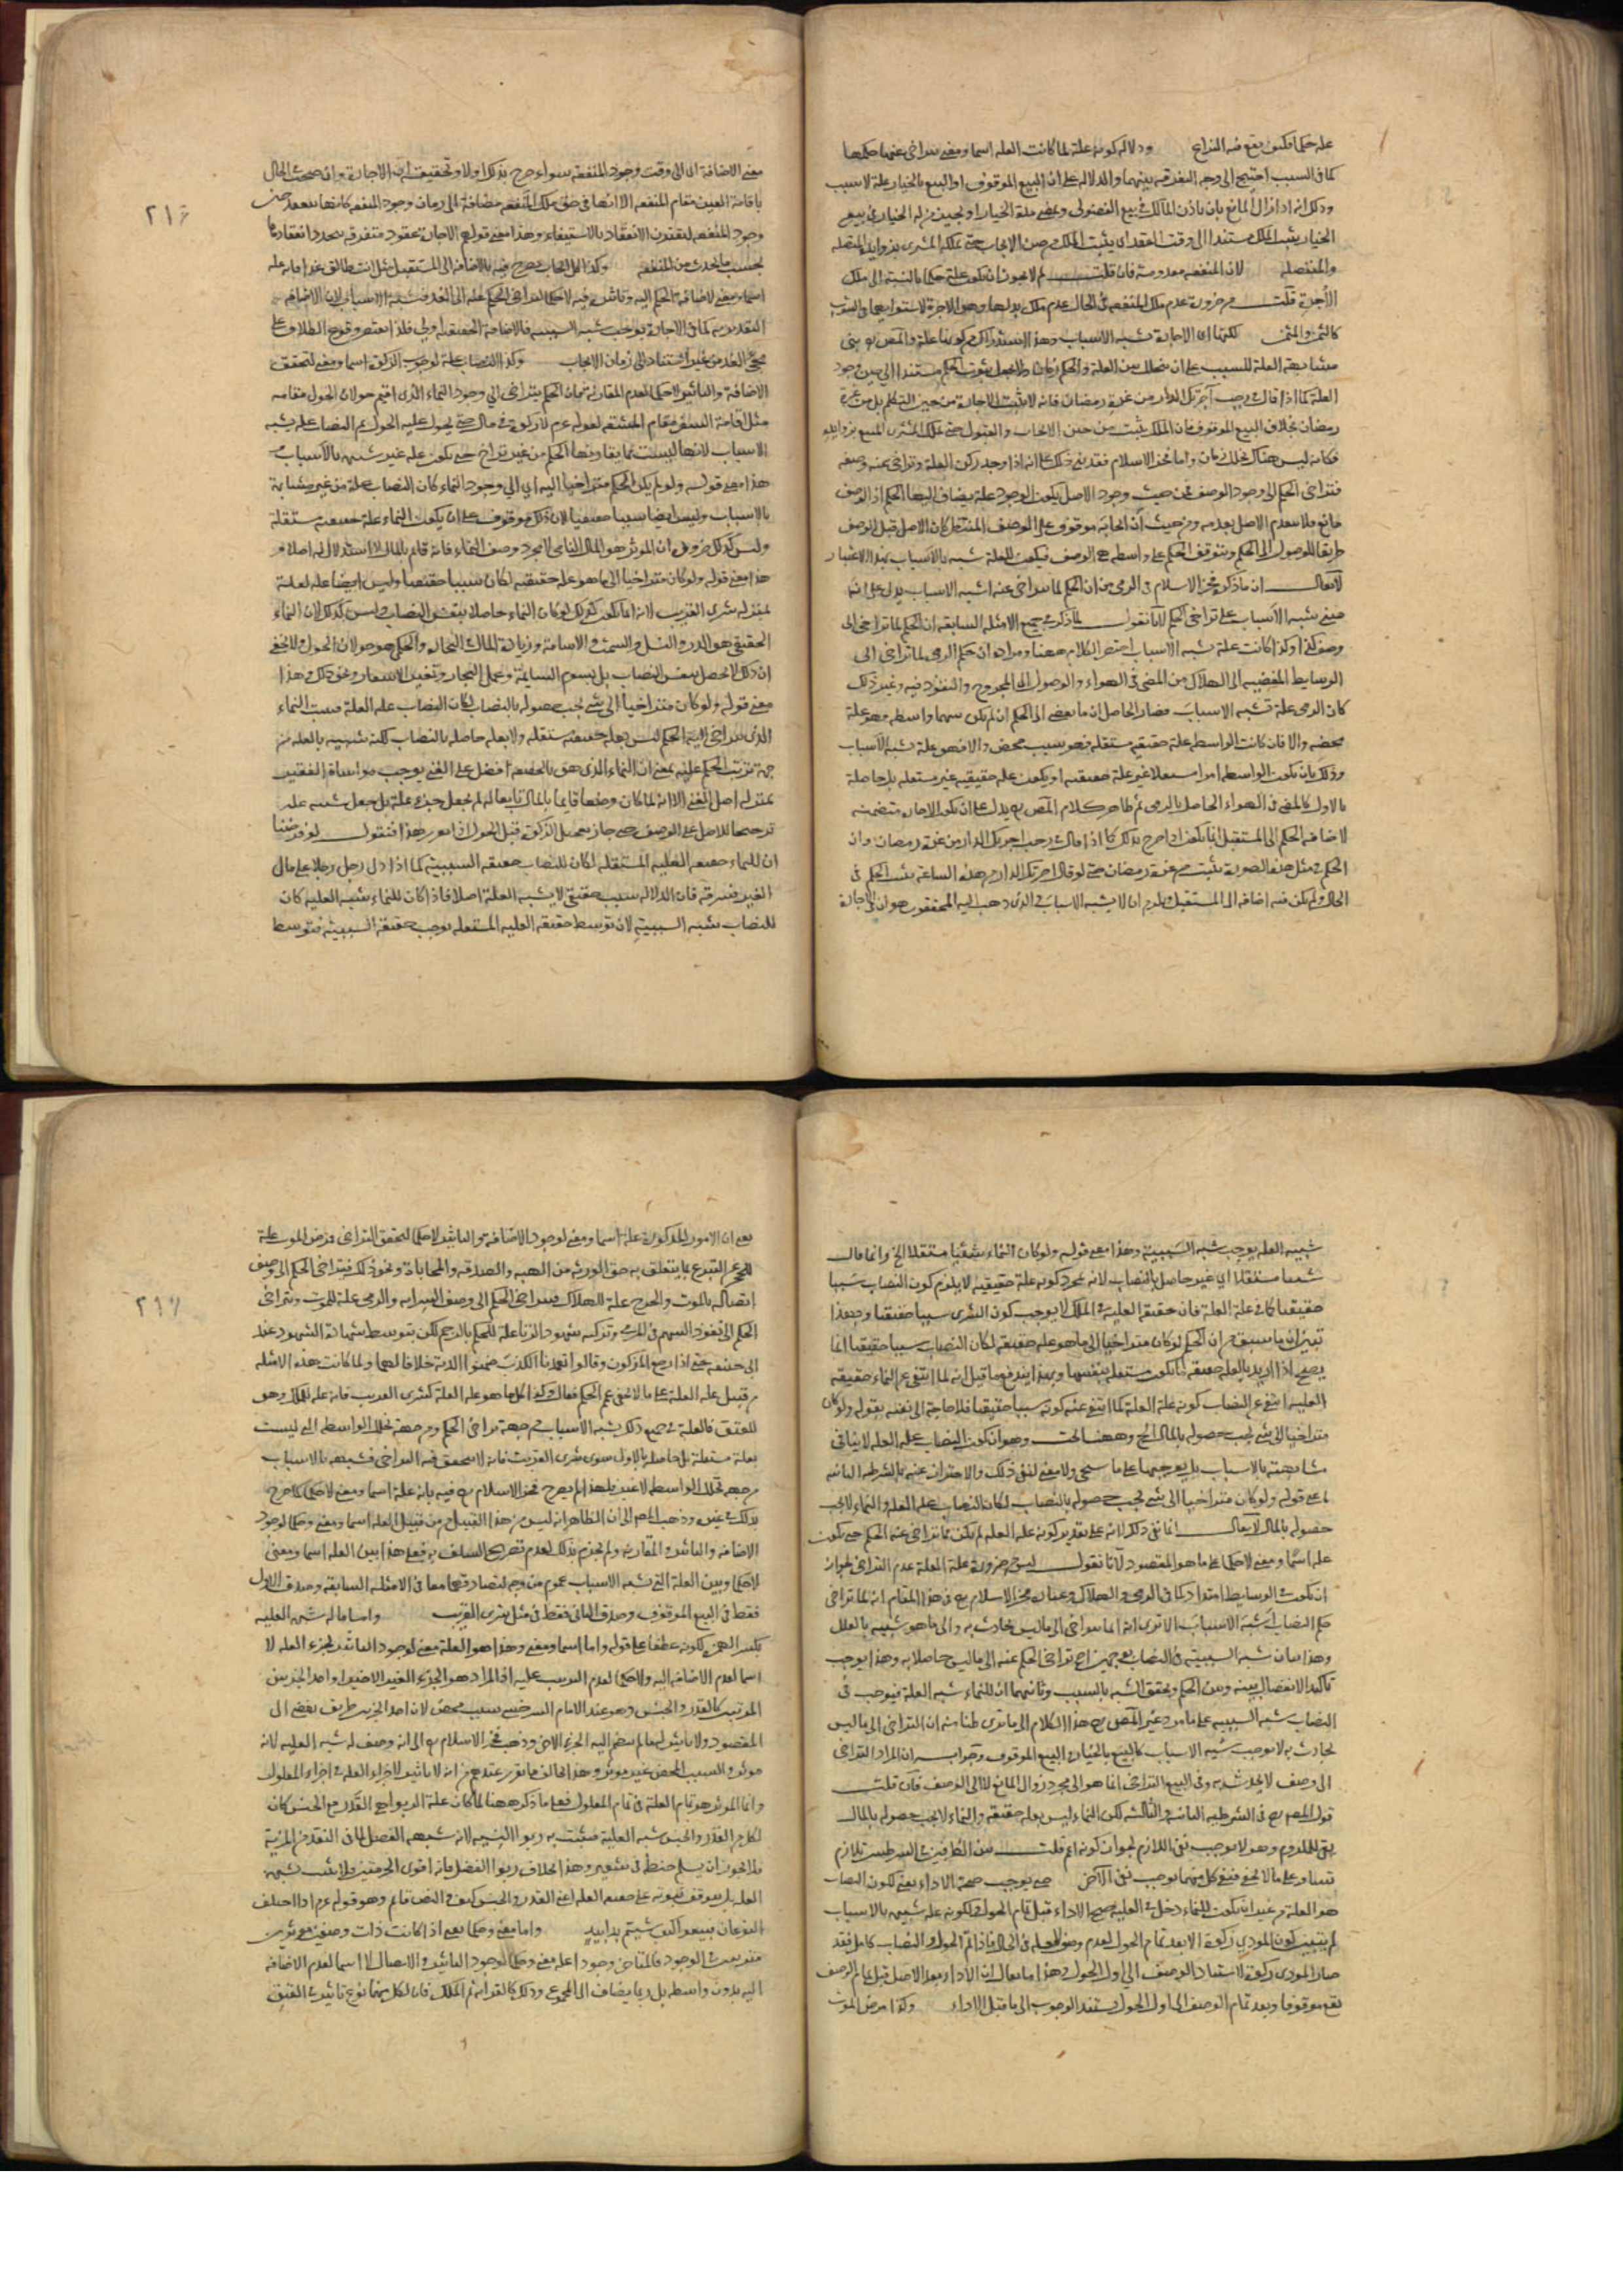 علة حكما فكيف يقع فيه التراخي ودلالة كونه علة لما كانت العلة اسما ومعنى يتراخى عنها حكمها
كما في السبب احتيج الى وجه التفرقة بينهما والدلالة على ان البيع الموقوف او البيع بالخيار علة لا سبب
وذلك انه اذا زال المانع بان ياذن المالك في بيع الفضولي ويمضي مدة الخيار او يجيز من له الخيار في بيع
الخيار يثبت الملك مستندا الى وقت العقد اي يثبت الملك من حين الايجاب حتى يملكه المشتري بزوائده المتصلة
والمنفصلة لان المنفعة معدومة فان قلت لم لا يجوز ان يكون علة حكما بالنسبة الى ملك
الأجرة قلت من ضرورة عدم ملك المنفعة في الحال عدم ملك بدلها وهو الاجرة لاستوائهما في الثبوت
كالثمن والمثمن لكنها اي الاجارة تشبه الاسباب وهذا استدراك من كونها علة والمص بنى
مشابهة العلة للسبب على ان يتخلل بين العلة والحكم زمان ولا يجعل ثبوت الحكم مستندا الى حين وجود
العلة كما اذا قال في رجب آجرتك الدار من غرة رمضان فانه لا تثبت الاجارة من حين التكلم بل من غرة
رمضان بخلاف البيع الموقوف فان الملك يثبت من حين الايجاب والقبول حتى يملك المشتري المبيع بزوائده
فكانه ليس هناك تخلل زمان واما فخر الاسلام فقد بنى ذلك على انه اذا وجد ركن العلة وتراخى عنه وصفه
فتراخى الحكم الى وجود الوصف فمن حيث وجود الاصل يكون الموجود علة يضاف اليها الحكم اذ الوصف
تابع فلا ينعدم الاصل بعدمه ومن حيث ان ايجابه موقوف على الوصف المنتظر كان الاصل قبل الوصف
طريقا للوصول الى الحكم ويتوقف الحكم على واسطة هي الوصف فيكون للعلة شبه بالاسباب بهذا الاعتبار
لا يقال ان ما ذكره فخر الاسلام في الرمي من ان الحكم لما تراخى عنه اشبه الاسباب يدل على ان
مبنى شبه الاسباب على تراخي الحكم لانا نقول لما ذكر في جميع الامثلة السابقة ان الحكم لما تراخى الى
وصف كذا وكذا كانت علة تشبه الاسباب اختصر الكلام ههنا ومراده ان حكم الرمي لما تراخى الى
الوسايط المفضية الى الهلاك من المضي في الهواء والوصول الى المجروح والنفوذ فيه وغير ذلك
كان الرمي علة تشبه الاسباب فصار الحاصل ان ما يفضي الى الحكم ان لم يكن بينهما واسطة فهو علة
محضة والا فان كانت الواسطة علة حقيقية مستقلة فهو سبب محض والا فهو علة تشبه الاسباب
وذلك بان يكون الواسطة امرا مستقلا غير علة حقيقية او يكون علة حقيقية غير مستقلة بل حاصلة
بالاول كالمضي في الهواء الحاصل بالرمي ثم ظاهر كلام المص يدل على ان يكون الاجارة متضمنة
لاضافة الحكم الى المستقبل انما يكون اذا صرح بذلك كما اذا قال في رجب اجرتك الدار من غرة رمضان وان
الحكم في مثل هذه الصورة يثبت من غرة رمضان حتى لو قال اجرتك الدار من هذه الساعة يثبت الحكم في
الحال ولم يكن فيه اضافة الى المستقبل ويلزم ان لا يشبه الاسباب والذي ذهب اليه المحققون هو ان في الاجارة
٢١٦
معنى الاضافة اي الى وقت وجود المنفعة سواء صرح بذلك او لا وتحقيقه ان الاجارة وان صحت في الحال
باقامة العين مقام المنفعة الا انها في حق ملك المنفعة مضافة الى زمان وجود المنفعة كانها تنعقد حين
وجود المنفعة ليقترن الانعقاد بالاستيفاء وهذا معنى قولهم الاجارة عقود متفرقة يتجدد انعقادها
بحسب ما يحدث من المنفعة وكذا كل ايجاب صرح فيه بالاضافة الى المستقبل مثل انت طالق غدا فانه علة
اسما ومعنى لاضافة الحكم اليه وتاثيره فيه لا حكما لتراخي الحكم عنه الى الغد فيشبه الاسباب لان الاضافة
التقديرية كما في الاجارة يوجب شبه السببية فالاضافة الحقيقية اولى فلذا يقتصر وقوع الطلاق على
مجيء الغد من غير استناد الى زمان الايجاب وكذا النصاب علة لوجوب الزكوة اسما ومعنى لتحقق
الاضافة والتاثير لا حكما لعدم المقارنة فان الحكم يتراخى الى وجود النماء الذي اقيم حولان الحول مقامه
مثل اقامة السفر مقام المشقة لقوله عم لا زكوة في مال حتى يحول عليه الحول ثم النصاب علة تشبه
الاسباب لانها ليست مما يقارنها الحكم من غير تراخ حتى يكون علة غير شبيهة بالاسباب
هذا معنى قوله ولو لم يكن الحكم متراخيا اليه اي الى وجود النماء كان النصاب علة من غير مشابهة
بالاسباب وليس ايضا سببا حقيقيا لان ذلك موقوف على ان يكون النماء علة حقيقية مستقلة
وليس كذلك ضرورة ان المؤثر هو المال النامي لا مجرد وصف النماء فانه قائم بالمال لا استقلال له اصلا و
هذا معنى قوله ولو كان متراخيا الى ما هو علة حقيقية لكان سببا حقيقيا وليس ايضا علة لعلة
بمنزلة شرى القريب لانه انما يكون كذلك لو كان النماء حاصلا بنفس النصاب وليس كذلك لان النماء
الحقيقي هو الدر والنسل والسمن في الاسامة وزيادة المال في التجارة والحكمي هو حولان الحول ولا يخفى
ان ذلك لا يحصل بنفس النصاب بل بسوم السايمة وعمل التجارة وتغير الاسعار ونحو ذلك وهذا
معنى قوله ولو كان متراخيا الى شيء يجب حصوله بالنصاب لكان النصاب علة العلة فثبت ان النماء
الذي يتراخى اليه الحكم ليس بعلة حقيقية مستقلة ولا بعلة حاصلة بالنصاب لكنه شبيه بالعلة من
جهة ترتب الحكم عليه بمعنى ان النماء الذي هو بالحقيقة افضل على الغنى يوجب مواساة الفقير
بمنزلة اصل الغنى الا انه لما كان وصفا قائما بالمال تابعا له لم يجعل جزء علة بل جعل شبيه علة
ترجيحا للاصل على الوصف حتى جاز تعجيل الزكوة قبل الحول اذا تقرر هذا فنقول لو فرضنا
ان للنماء حقيقة العلية المستقلة لكان للنصاب حقيقة السببية كما اذا دل رجل رجلا على مال
الغير فسرقه فان الدلالة سبب حقيقي لا يشبه العلة اصلا فاذا كان للنماء شبه العلية كان
للنصاب شبه السببية لان توسط حقيقة العلية المستقلة يوجب حقيقة السببية فتوسط
شبيه العلة يوجب شبه السببية وهذا معنى قوله ولو كان النماء شيئا مستقلا الخ وانما قال
شيئا مستقلا اي غير حاصل بالنصاب لانه بمجرد كونه علة حقيقية لا يلزم كون النصاب سببا
حقيقيا كما في علة العلة فان حقيقة العلية في الملك لا يوجب كون الشرى سببا حقيقيا وبهذا
تبين ان ما سبق من ان الحكم لو كان متراخيا الى ما هو علة حقيقية لكان النصاب سببا حقيقيا انما
يصح اذا اريد بالعلة حقيقة ما يكون مستقلة بنفسها وبهذا يندفع ما قيل انه لما انتفى عن النماء حقيقة
العلية انتفى عن النصاب كونه علة العلة كما انتفى عنه كونه سببا حقيقيا فلا حاجة الى نفيه بقوله ولو كان
متراخيا الى شيء يجب حصوله بالمال الخ وههنا بحث وهو ان كون النصاب علة العلة لا ينافي
مشابهته بالاسباب بل يوجبها على ما سيجي ولا معنى لنفي ذلك والاحتراز عنه بالشرطية الثانية
اعني قوله ولو كان متراخيا الى شيء يجب حصوله بالنصاب لكان النصاب علة العلة والنماء لا يجب
حصوله بالمال لا يقال انما نفى ذلك لانه على تقدير كونه علة العلة لم يكن مما تراخى عنه الحكم حتى يكون
علة اسما ومعنى لا حكما على ما هو المقصود لانا نقول ليس من ضرورة علة العلة عدم التراخي لجواز
ان يكون في الوسايط امتداد كما في الرمي والهلاك وعبارة فخر الاسلام في هذا المقام انه لما تراخى
حكم النصاب اشبه الاسباب الا ترى انه انما يتراخى الى ما ليس بحادث به والى ما هو شبيه بالعلل
وهذا بيان شبه السببية في النصاب بوجهين احدهما تراخي الحكم عنه الى ما ليس حاصلا به وهذا يوجب
تاكد الانفصال بينه وبين الحكم وتحقق الشبه بالسبب وثانيهما ان للنماء شبه العلة فيوجب في
النصاب شبه السببية على ما مر وغير المص هذا الكلام الى ما ترى ظنا منه ان التراخي الى ما ليس
بحادث به لا يوجب شبه الاسباب كالبيع بالخيار والبيع الموقوف وجوابه ان المراد التراخي
الى وصف لا يحدث به وفي البيع التراخي انما هو الى مجرد زوال المانع لا الى الوصف فان قلت
قول المص في الشرطية الثانية والثالثة لكن النماء ليس بعلة حقيقة والنماء لا يجب حصوله بالمال
نفي للملزوم وهو لا يوجب نفي اللازم لجواز كونه اعم قلت بين الطرفين في الشرطيتين تلازم
تساو على ما لا يخفى فنفي كل منهما يوجب نفي الآخر حتى يوجب صحة الاداء يعني لكون النصاب
هو العلة من غير ان يكون للنماء دخل في العلية صح الاداء قبل تمام الحول ولكونه علة شبيهة بالاسباب
لم يتبين كون المودى زكوة الا بعد تمام الحول لعدم وصف العلة في الحال فاذا تم الحول والنصاب كامل فقد
صار المودى زكوة لاستناد الوصف الى اول الحول وهذا ما يقال ان الاداء بعد الاصل قبل تمام الوصف
يقع موقوفا وبعد تمام الوصف الى اول الحول يستند الوجوب الى ما قبل الاداء وكذا مرض الموت
٢١٧
يعني ان الامور المذكورة علة اسما ومعنى لوجود الاضافة والتاثير لا حكما لتحقق التراخي فمرض الموت علة
للحجر عن التبرع بما يتعلق به حق الورثة من الهبة والصدقة والمحاباة ونحو ذلك فيتراخى الحكم الى وصف
اتصاله بالموت والجرح علة للهلاك فيتراخى الحكم الى وصف السراية والرمي علة للموت ويتراخى
الحكم الى نفوذ السهم في المرمي وتزكية شهود الزنا علة للحكم بالرجم لكن بتوسط شهادة الشهود عند
ابي حنيفة حتى اذا رجع المزكون وقالوا تعمدنا الكذب ضمنوا الدية خلافا لهما ولما كانت هذه الامثلة
من قبيل علة العلة على ما لا يخفى عم الحكم فقال وكذا كل ما هو علة العلة كشرى القريب فانه علة للملك وهو
للعتق فالعلة في جميع ذلك يشبه الاسباب من جهة تراخي الحكم ومن جهة تخلل الواسطة التي ليست
بعلة مستقلة بل حاصلة بالاول سوى شرى القريب فانه لا يتحقق فيه التراخي فشبهه بالاسباب
من جهة تخلل الواسطة لا غير فلهذا لم يصرح فخر الاسلام فيه بانه علة اسما ومعنى لا حكما كما صرح
بذلك في غيره وذهب المص الى ان الظاهر انه ليس من هذا القبيل بل من قبيل العلة اسما ومعنى وحكما لوجود
الاضافة والتاثير والمقارنة ولم يجزم بذلك لعدم تصريح السلف به فعلى هذا بين العلة اسما ومعنى
لا حكما وبين العلة التي تشبه الاسباب عموم من وجه لتصادقهما معا في الامثلة السابقة وصدق الاول
فقط في البيع الموقوف وصدق الثاني فقط في مثل شرى القريب واما ما له شبه العلية
بكسر الهمزة لكونه عطفا على قوله واما اسما ومعنى وهذا هو العلة معنى لوجود التاثير لجزء العلة لا
اسما لعدم الاضافة اليه ولا حكما لعدم الترتب عليه اذ المراد هو الجزء الغير الاخير او احد الجزئين
الغير المرتبين كالقدر والجنس وهو عند الامام السرخسي سبب محض لان احد الجزئين طريق يفضي الى
المقصود ولا تاثير له ما لم ينضم اليه الجزء الاخر وذهب فخر الاسلام الى انه وصف له شبه العلية لانه
مؤثر والسبب المحض غير مؤثر وهذا يخالف ما تقرر عندهم من انه لا تاثير لاجزاء العلة في اجزاء المعلول
وانما المؤثر هو تمام العلة في تمام المعلول فعلى ما ذكر ههنا لما كان علة الربوا هي القدر مع الجنس كان
لكل من القدر والجنس شبه العلية فيثبت به ربوا النسية لانه شبهة الفضل لما في النقد من المزية
فلا يجوز ان يسلم حنطة في شعير وهذا بخلاف ربوا الفضل فانه اقوى الحرمتين فلا يثبت بشبهة
العلة بل يتوقف ثبوته على حقيقة العلة اعني القدر والجنس كيف والنص قائم وهو قوله عم اذا اختلف
النوعان فبيعوا كيف شيتم يدا بيد واما معنى وحكما يعني اذا كانت ذات وصفين مؤثرين
مترتبين في الوجود فالمتاخر وجودا علة معنى وحكما لوجود التاثير والاتصال لا اسما لعدم الاضافة
اليه بدون واسطة بل ربما يضاف الى المجموع وذلك كالقرابة ثم الملك فان لكل منهما نوع تاثير في العتق